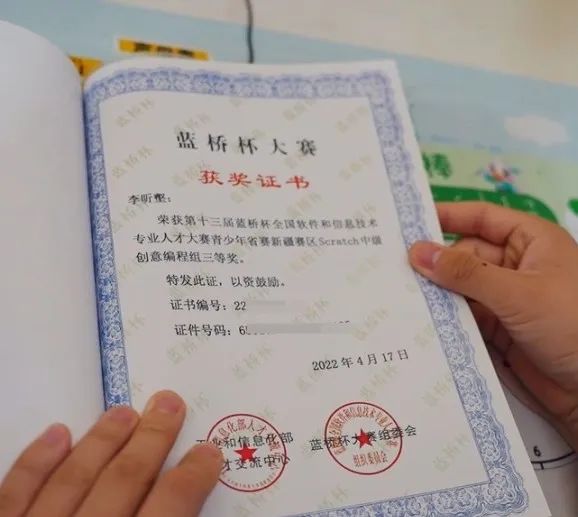 蓝桥杯大赛
获奖证书
李昕壑:
荣获第十三届蓝桥杯全国软件和信息技术
专业人才大赛青少年省赛新疆赛区Scratch中级
创意编程组三等奖。
特发此证,以资鼓励。
证书编号: 22
证件号码: 65
2022 年 4 月 17 日
和信息化部
蓝桥杯大赛组委会
才交流中心
组织委员会
棒
6
蓝桥杯